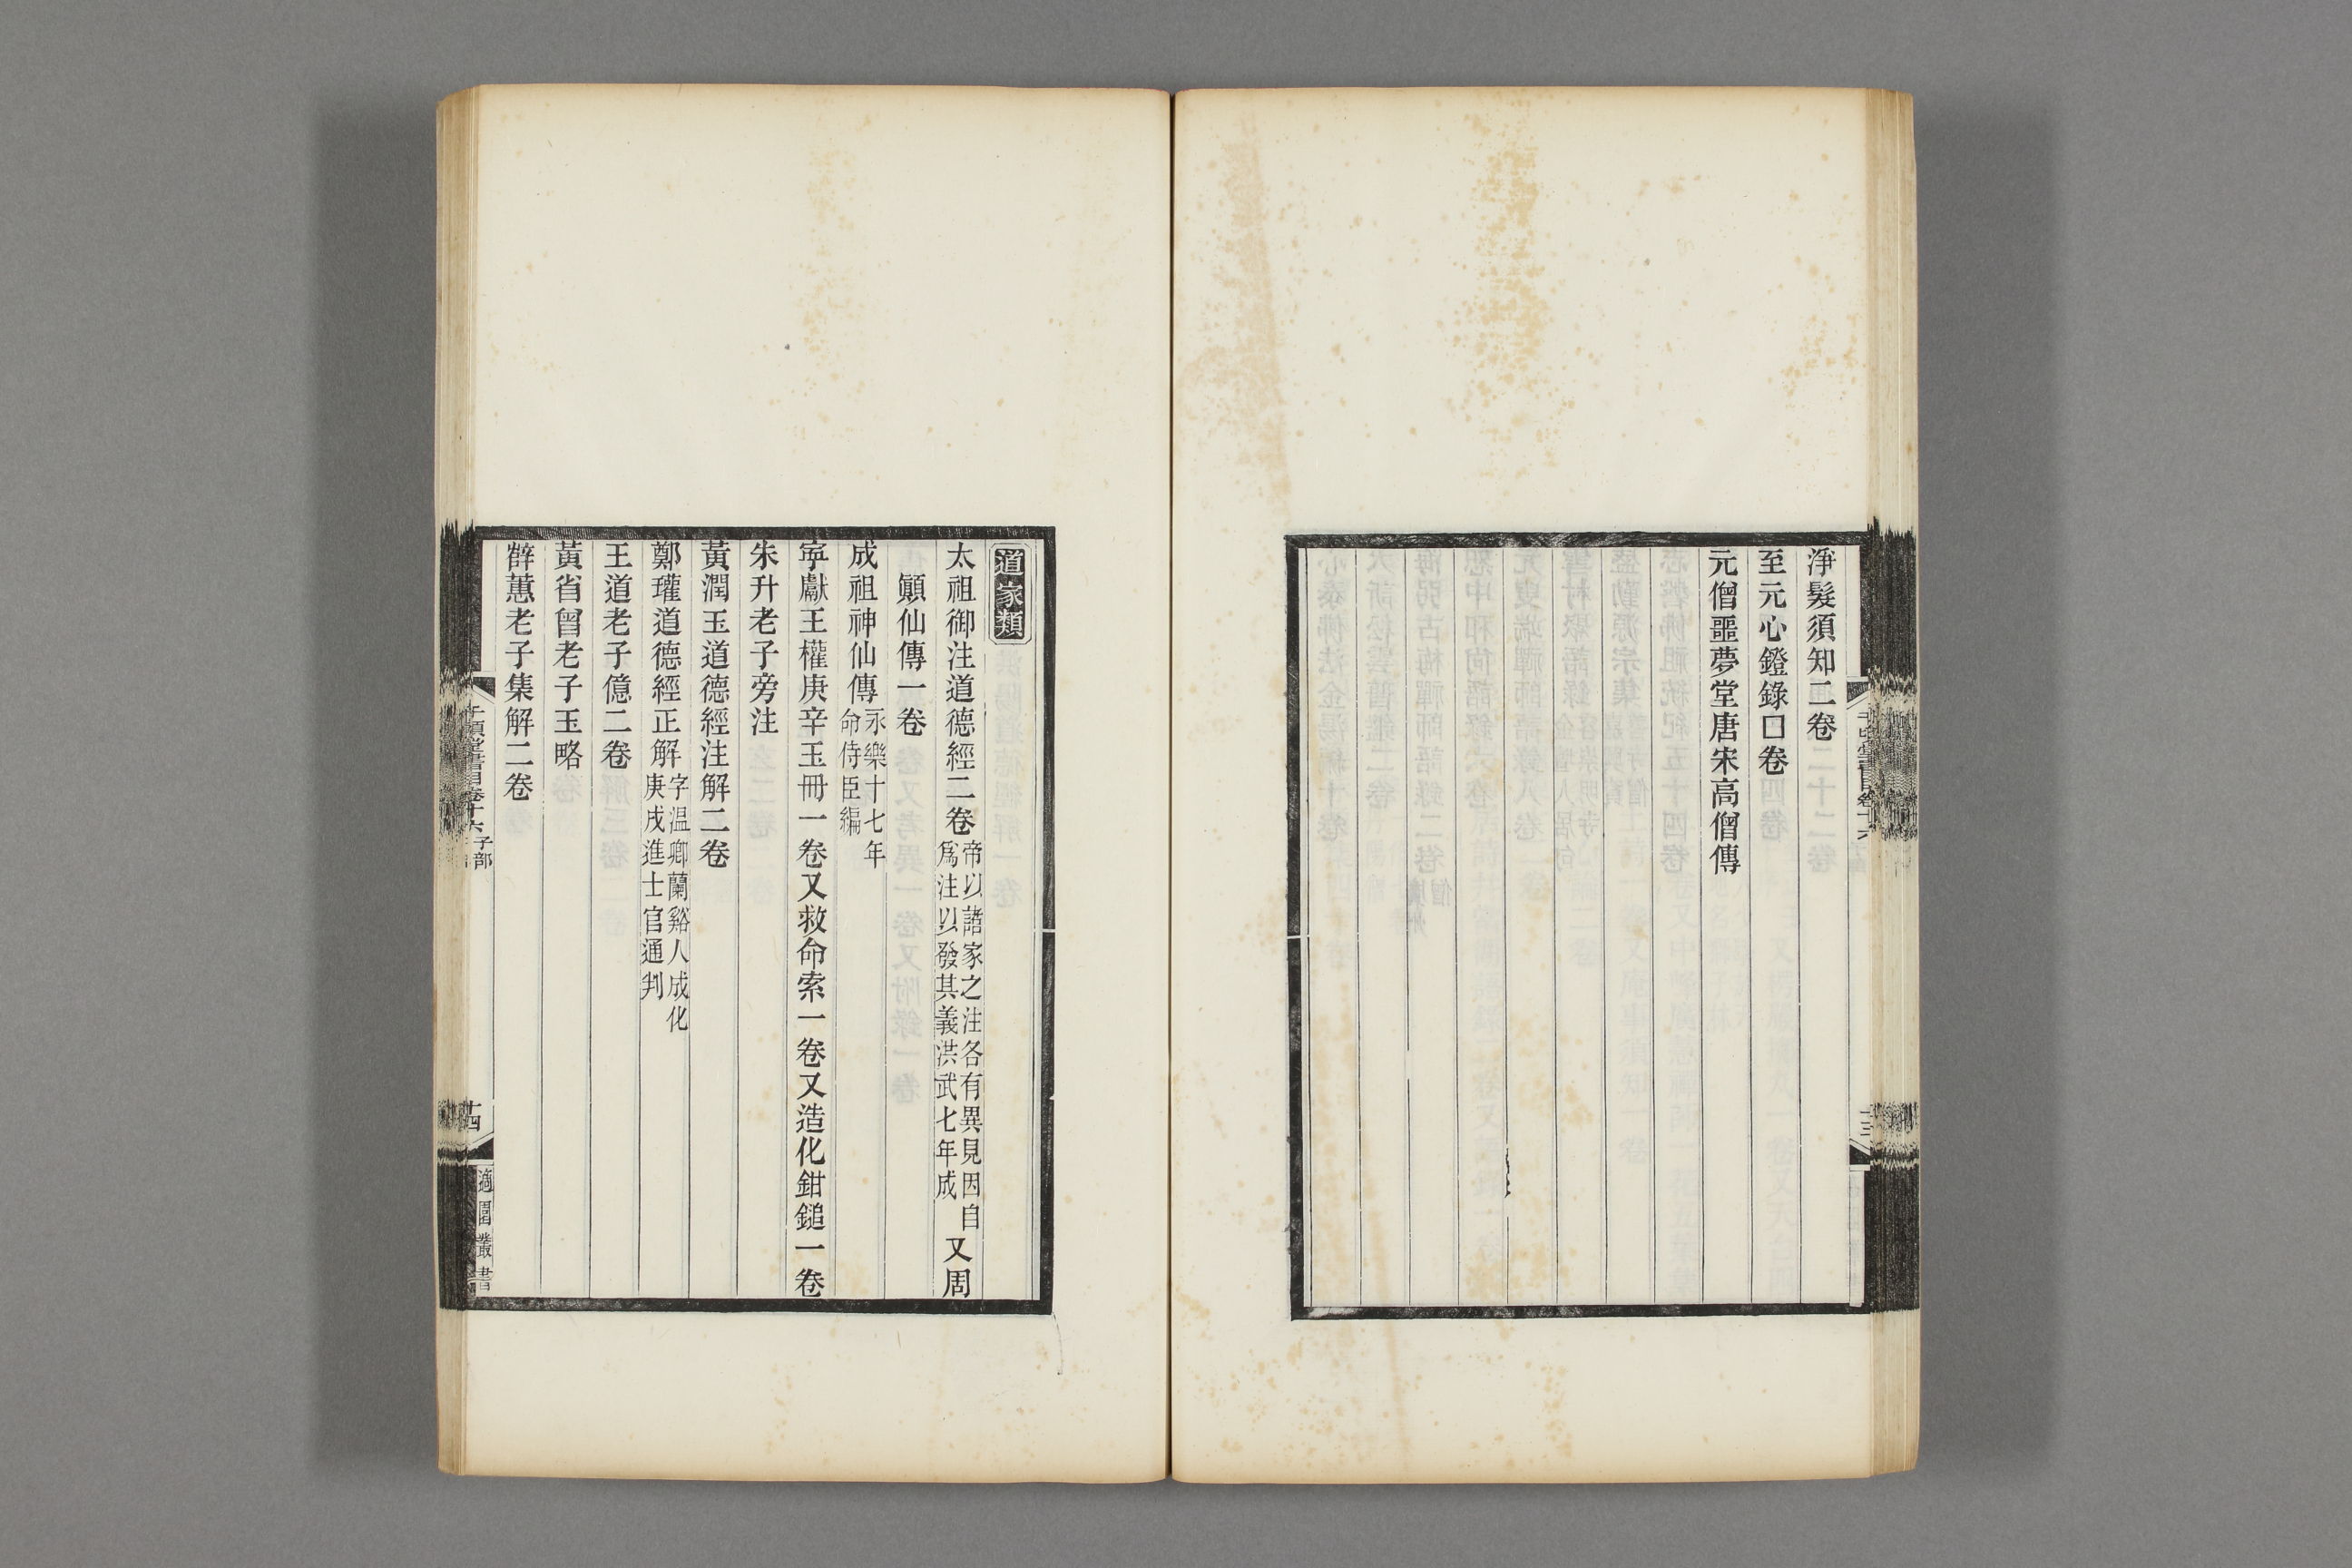 淨髮須知二卷
至元心鐙錄□卷
元僧噩夢堂唐宋高僧傳
道家類
太祖御注道德經二卷帝以諸家之注各有異見因自爲注以發其義洪武七年成又周
顚仙傳一卷
成祖神仙傳永樂十七年命侍臣編
寜獻王權庚辛玉冊一卷又救命索一卷又造化鉗鎚一卷
朱升老子旁注
黃潤玉道德經注解二卷
鄭瓘道德經正解字温卿蘭谿人成化庚戌進士官通判
王道老子億二卷
黃省曾老子玉略
薛蕙老子集解二卷
千頃堂書目卷十六 子部
十四
適園叢書